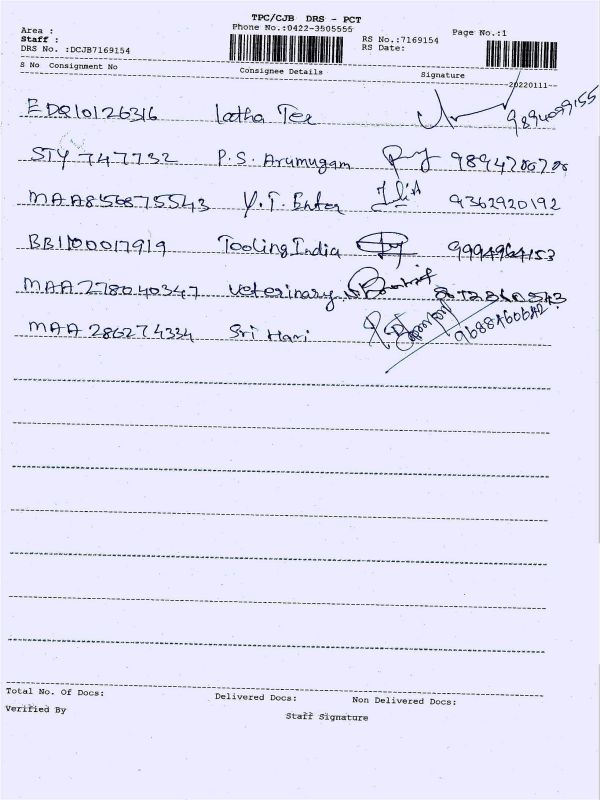 TPC/CJB DRS - PCT
Area :
Phone No.:0422-3505555
Page No.:1
Staff :
RS No.:7169154
DRS No. :DCJB7169154
RS Date:
S No Consignment No Consignee Details Signature
20220111
EDQ10126316 Latha Tex 9894099155
STY 747732 P.S. Arumugam
MAA856875543 9362920192
BB1100017919 Tooling India 9994964153
MAA278040347 Veterinary
MAA 286274334 Sri Hari
Total No. Of Docs: Delivered Docs: Non Delivered Docs:
Verified By Staff Signature